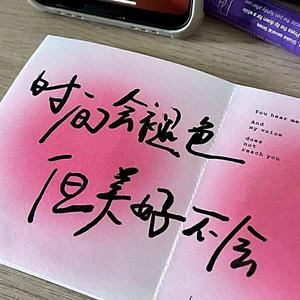 时间会褪色
但美好不会
You hear me
And
my voice
does
not
reach you